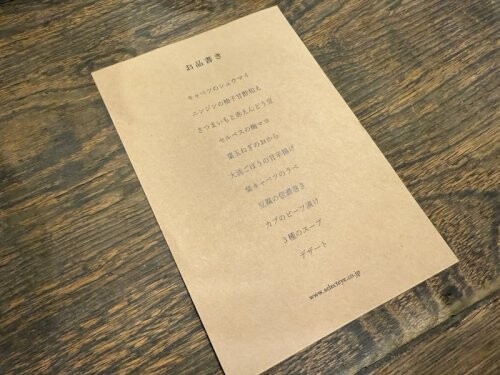 お品書き
キャベツのシュウマイ
ニンジンの柚子甘酢和え
さつまいもと赤えんどう豆
セルベスの梅マヨ
葉玉ねぎのおから
大浦ごぼうの甘辛揚げ
紫キャベツのラペ
豆腐の信濃巻き
カブのビーツ漬け
3種のスープ
デザート
www.selecteye.co.jp